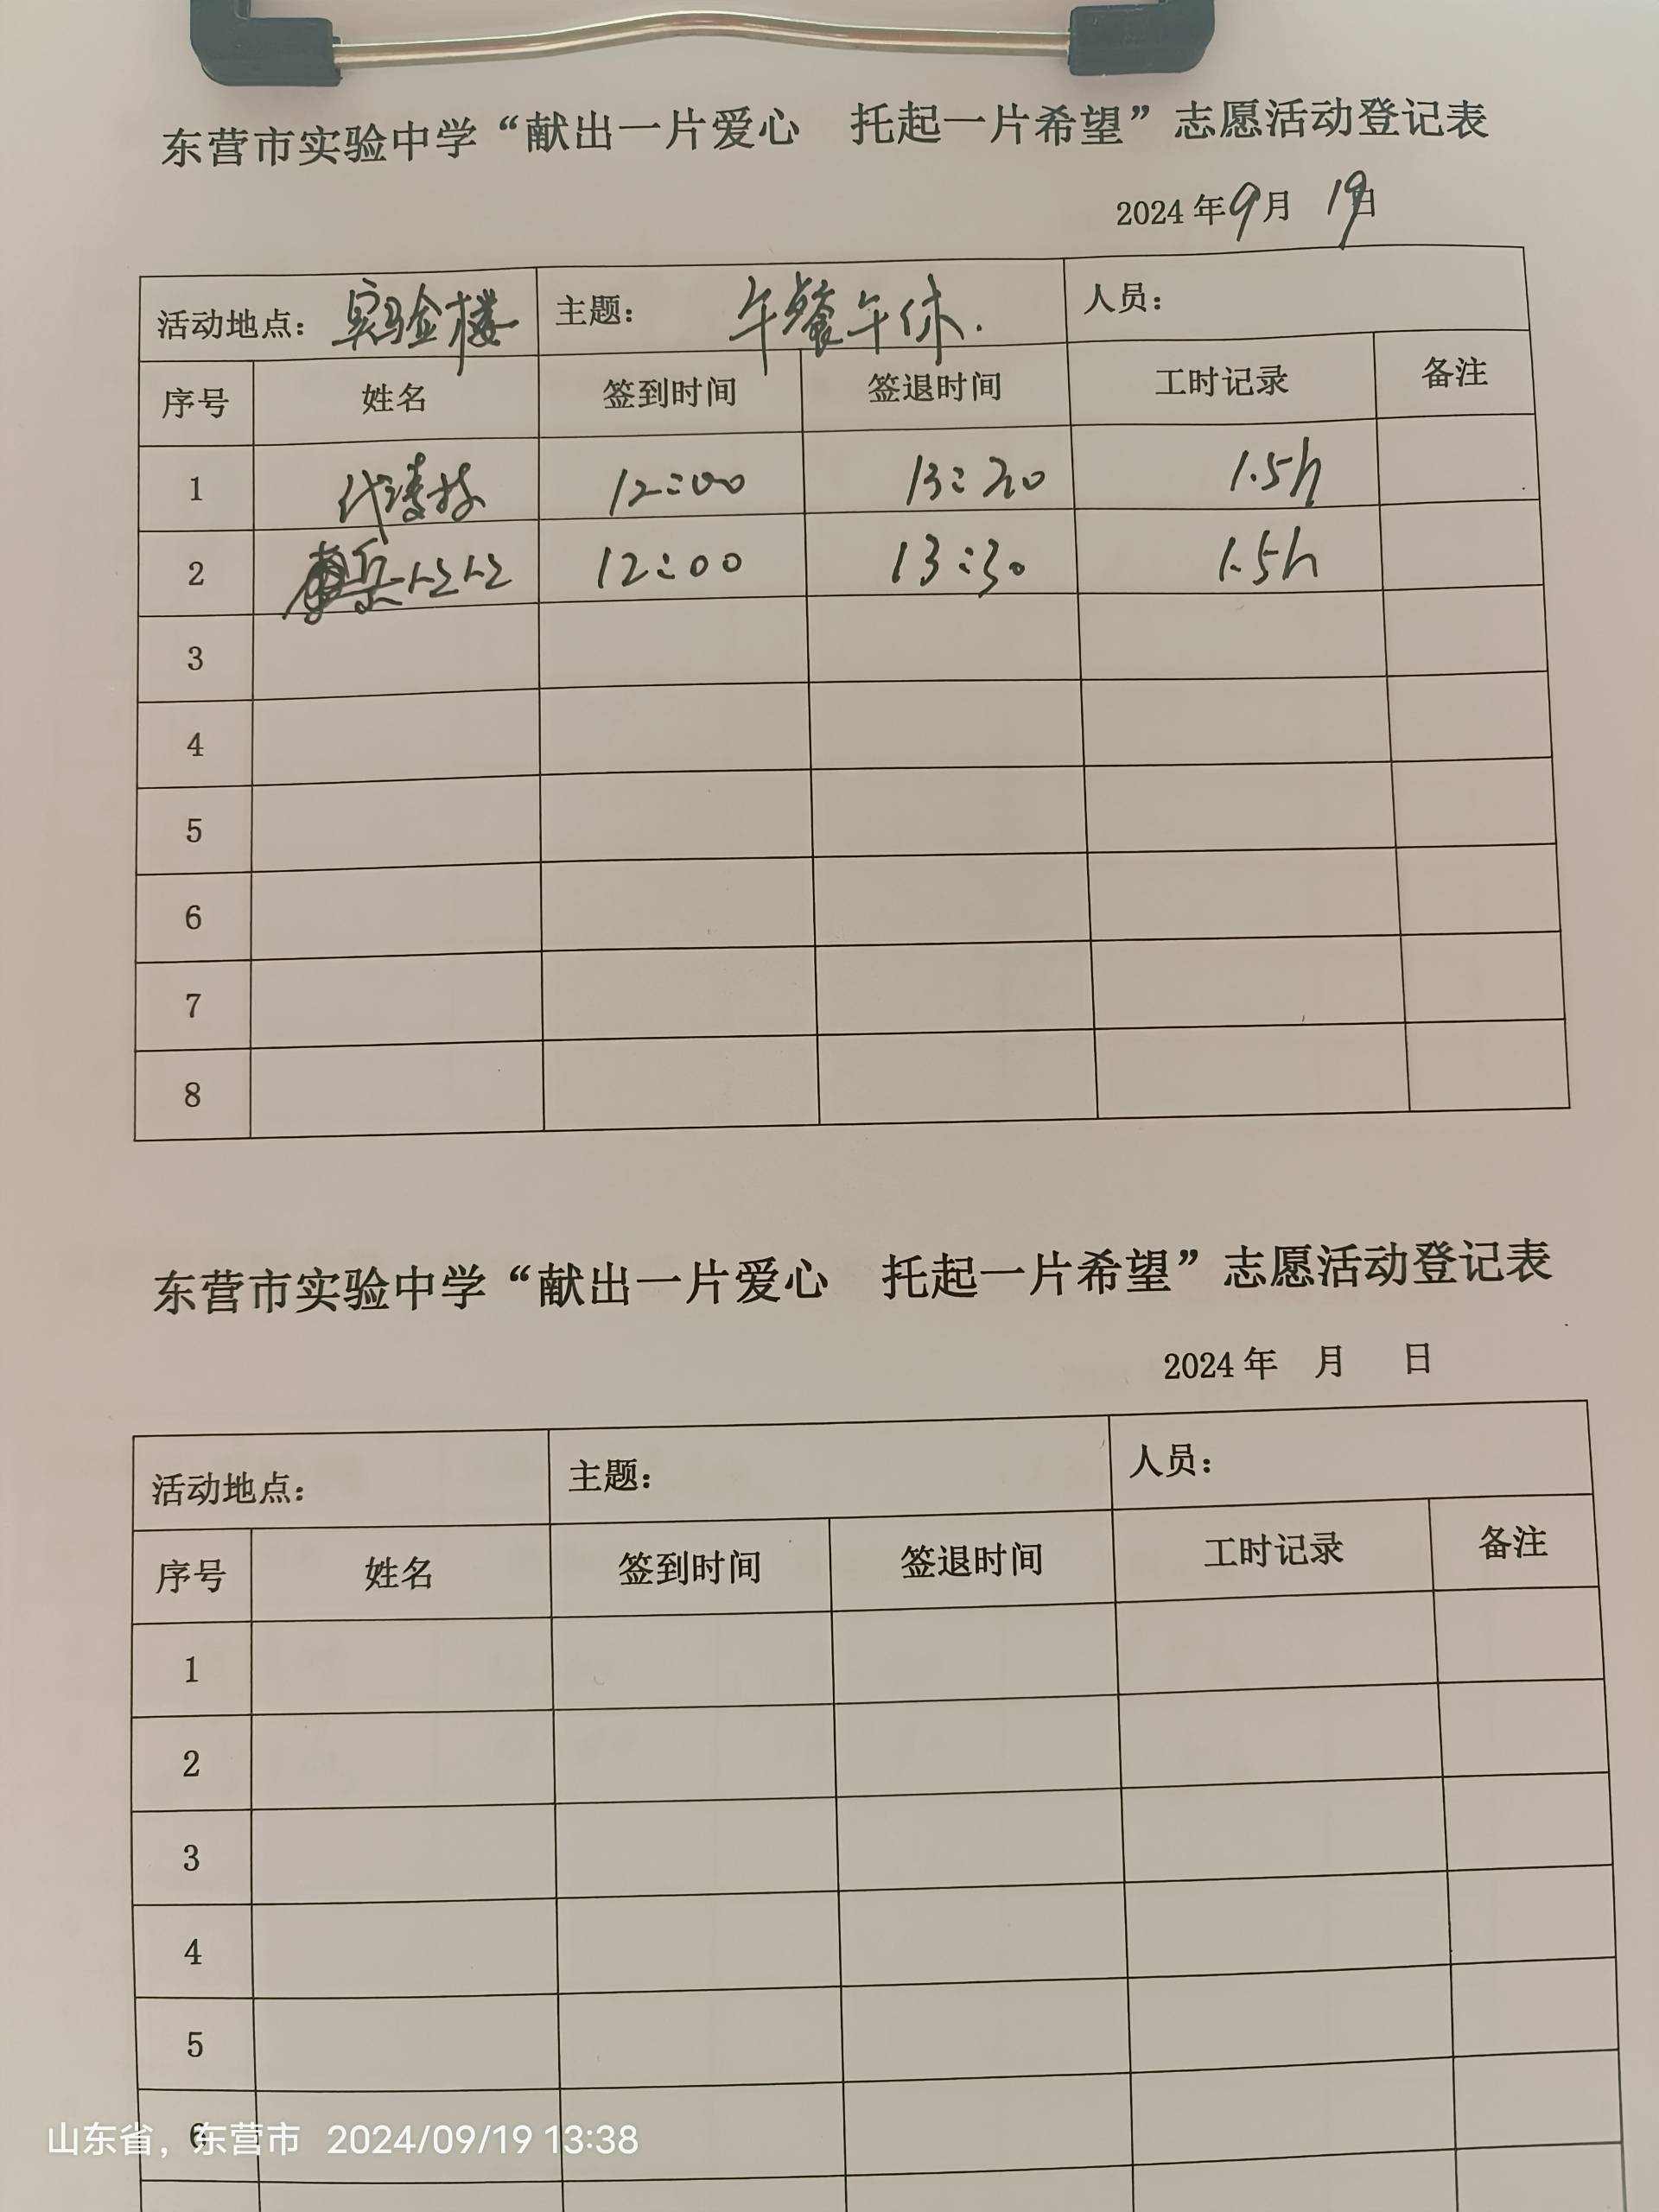 东营市实验中学“献出一片爱心 托起一片希望”志愿活动登记表
2024年9月 19日
活动地点：实验楼 主题：午餐午休. 人员：
序号 姓名 签到时间 签退时间 工时记录 备注
1 12:00 13:20 1.5h
2 12:00 13:30 1.5h
3
4
5
6
7
8
东营市实验中学“献出一片爱心 托起一片希望”志愿活动登记表
2024年 月 日
活动地点： 主题： 人员：
序号 姓名 签到时间 签退时间 工时记录 备注
1
2
3
4
5
6
山东省，东营市 2024/09/19 13:38